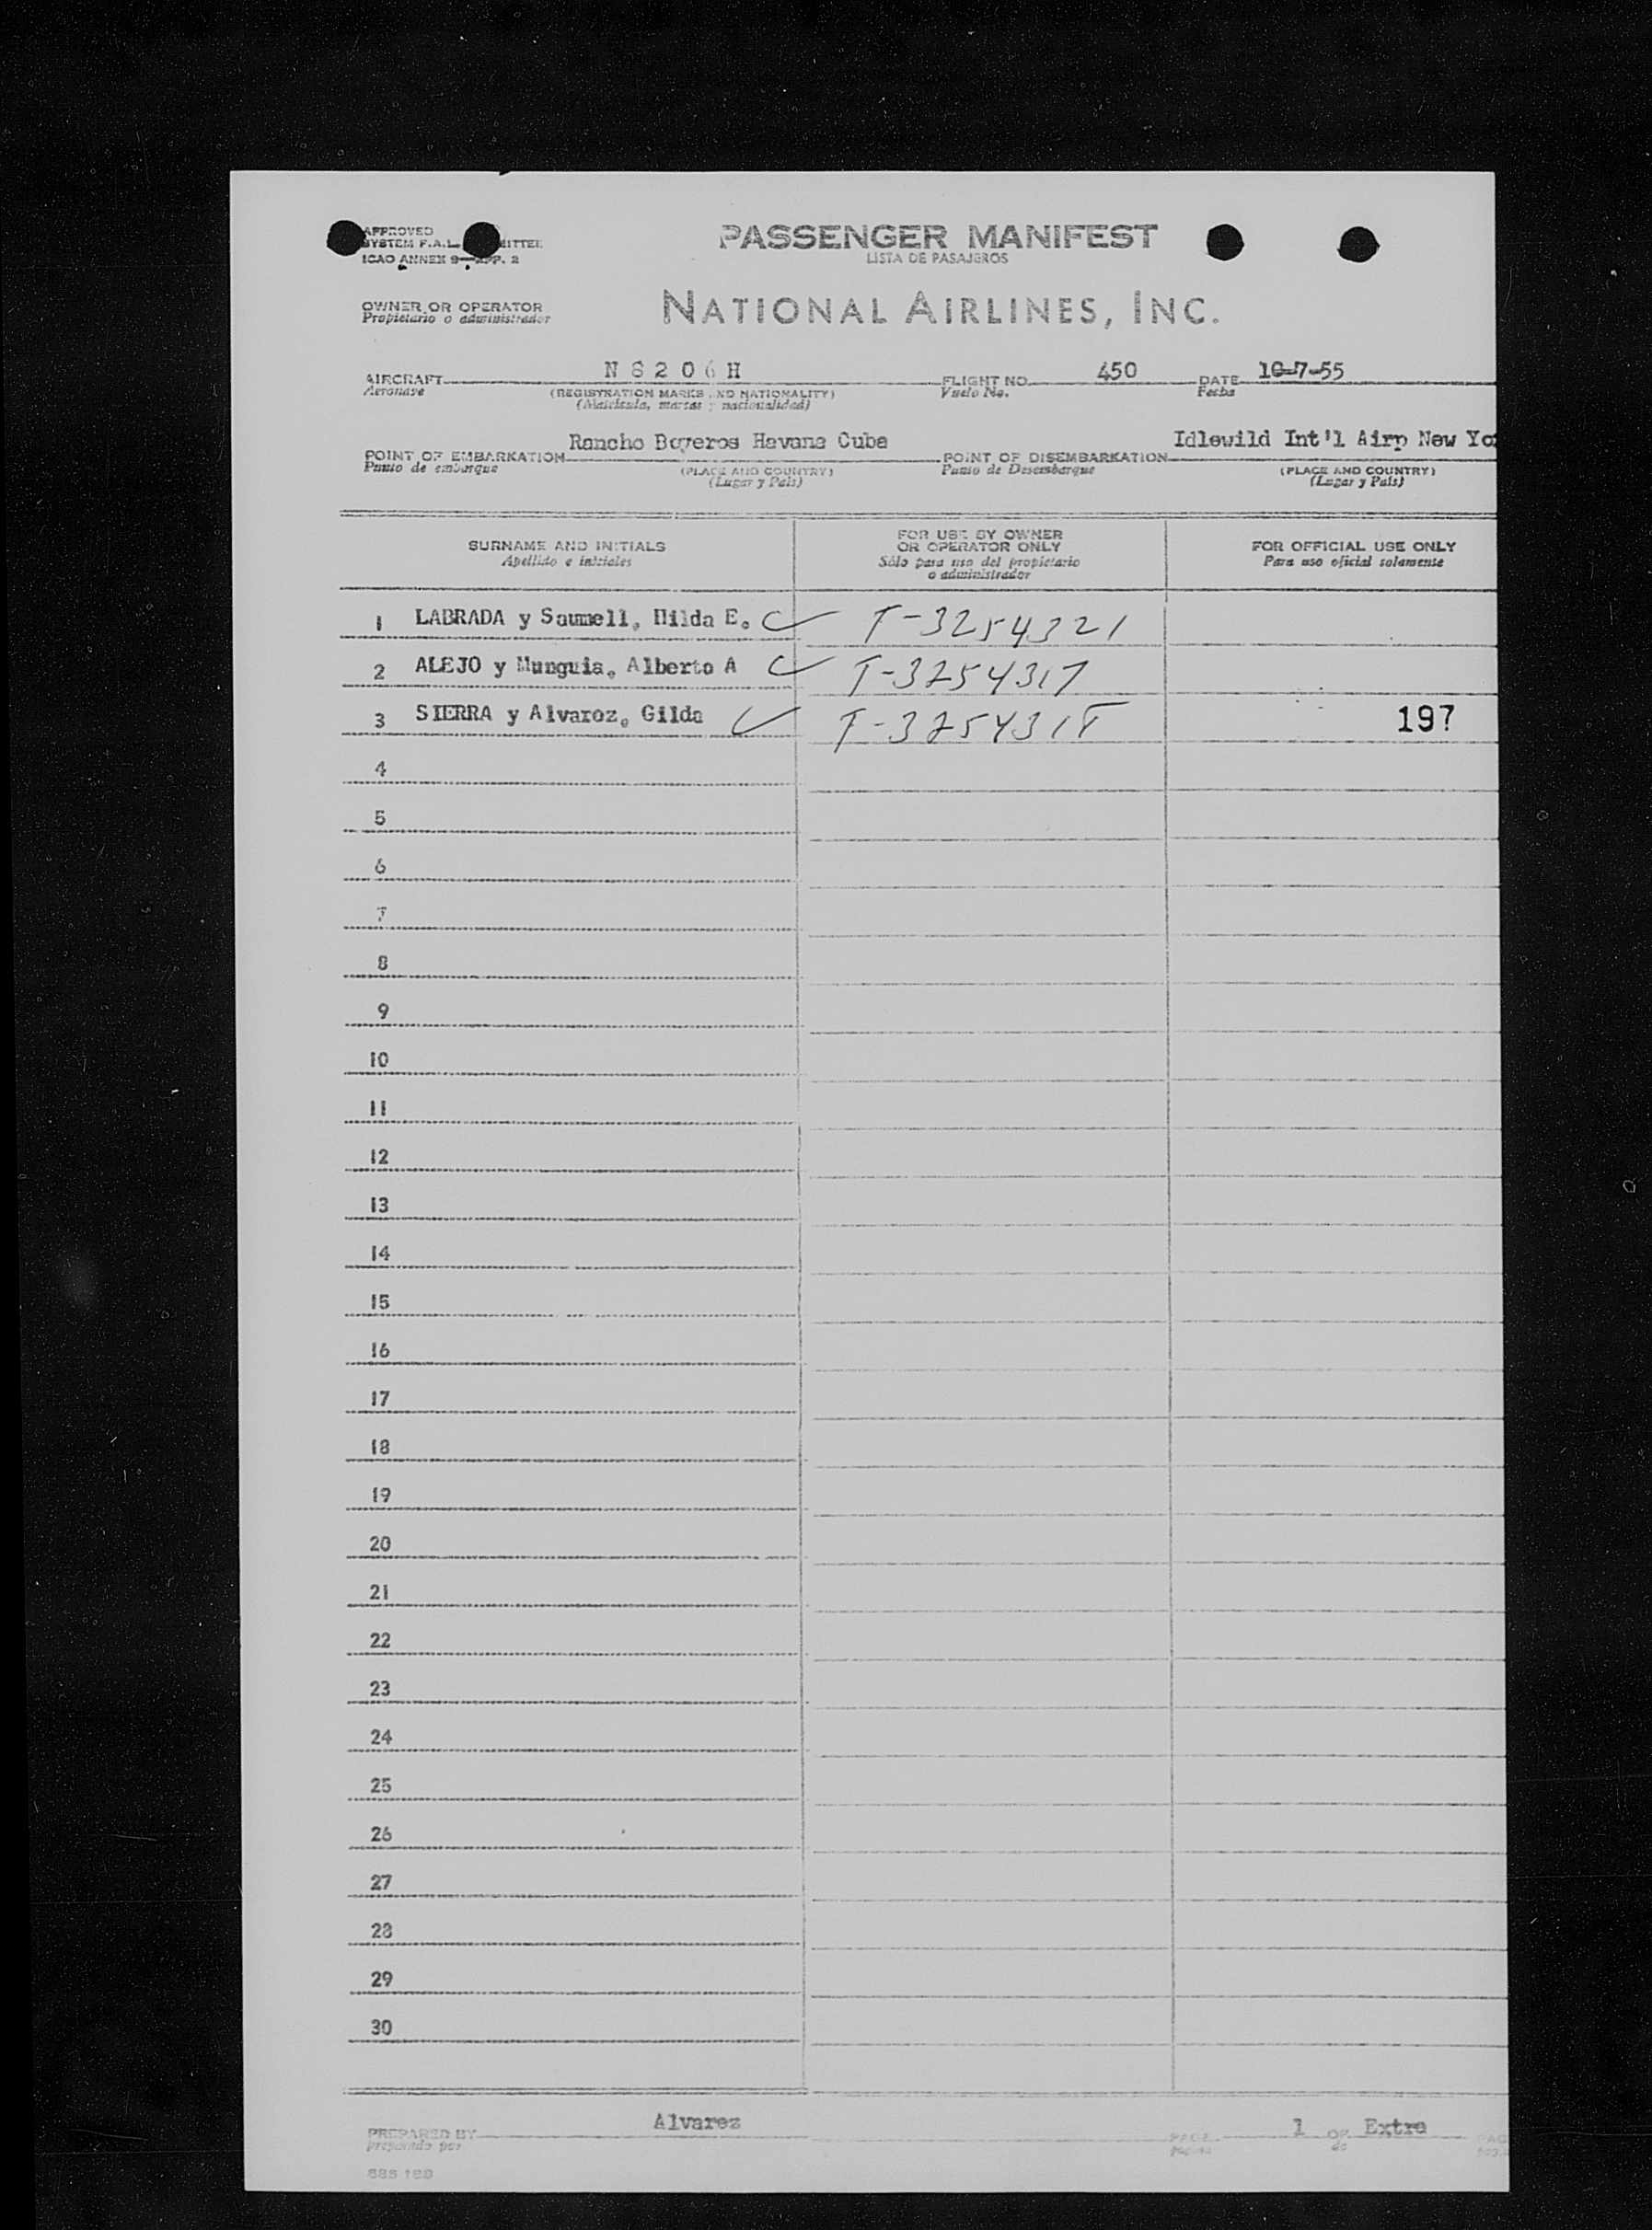 APPROVED
SYSTEM F.A.L.
ICAO ANNEX 9—APP. 2
PASSENGER MANIFEST
LISTA DE PASAJEROS
OWNER OR OPERATOR
Propietario o administrador
NATIONAL AIRLINES, INC.
AIRCRAFT N 8 2 0 6 H FLIGHT NO. 450 DATE 10-7-55
Aeronave (REGISTRATION MARKS AND NATIONALITY) Vuelo No. Fecha
(Matrícula, marcas y nacionalidad)
POINT OF EMBARKATION Rancho Boyeros Havana Cuba POINT OF DISEMBARKATION Idlewild Int'l Airp New Yo
Punto de embarque (PLACE AND COUNTRY) Punto de Desembarque (PLACE AND COUNTRY)
(Lugar y País) (Lugar y País)
SURNAME AND INITIALS
Apellido e iniciales
FOR USE BY OWNER
OR OPERATOR ONLY
Sólo para uso del propietario
o administrador
FOR OFFICIAL USE ONLY
Para uso oficial solamente
1 LABRADA y Saumell, Hilda E. T-3254321
2 ALEJO y Munguia, Alberto A T-3254317
3 SIERRA y Alvarez, Gilda T-3254318 197
4
5
6
7
8
9
10
11
12
13
14
15
16
17
18
19
20
21
22
23
24
25
26
27
28
29
30
PREPARED BY Alvarez PAGE 1 OF Extra PAG
preparado por página de